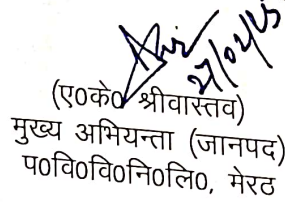 27/02/25
(ए०के० श्रीवास्तव)
मुख्य अभियन्ता (जानपद)
प०वि०वि०नि०लि०, मेरठ